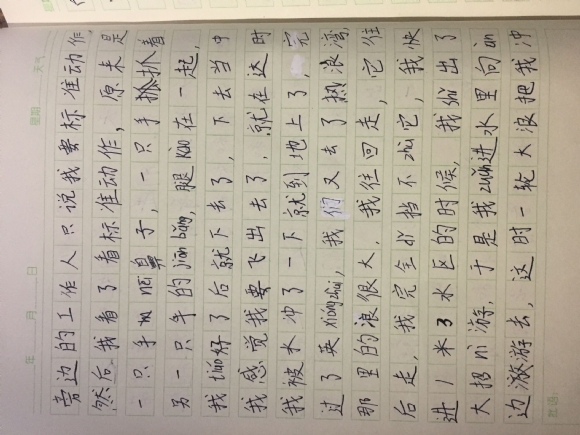 旁边的工作人只说我要标准动作,
然后我看了看标准动作,原来是
一只手nei鼻子,一只手抓着
另一只手的jiān bǎng,腿kào在一起,
我tiáo好了后就下去了,下去当中
我感觉我要飞出去了,就在这时
我被水冲了一下就到地上了,完
过了英xióngzhuī,我们又去了热浪湾,
那里的浪很大,我往回走,它往
后走,我完全挡不zhù它,我快
进1米3水区的时候,我们出了
大招ni游,于是我zuān进水里向àn
边游去,这时一轮大浪把我冲
年 月 日
星期
天气
批语: